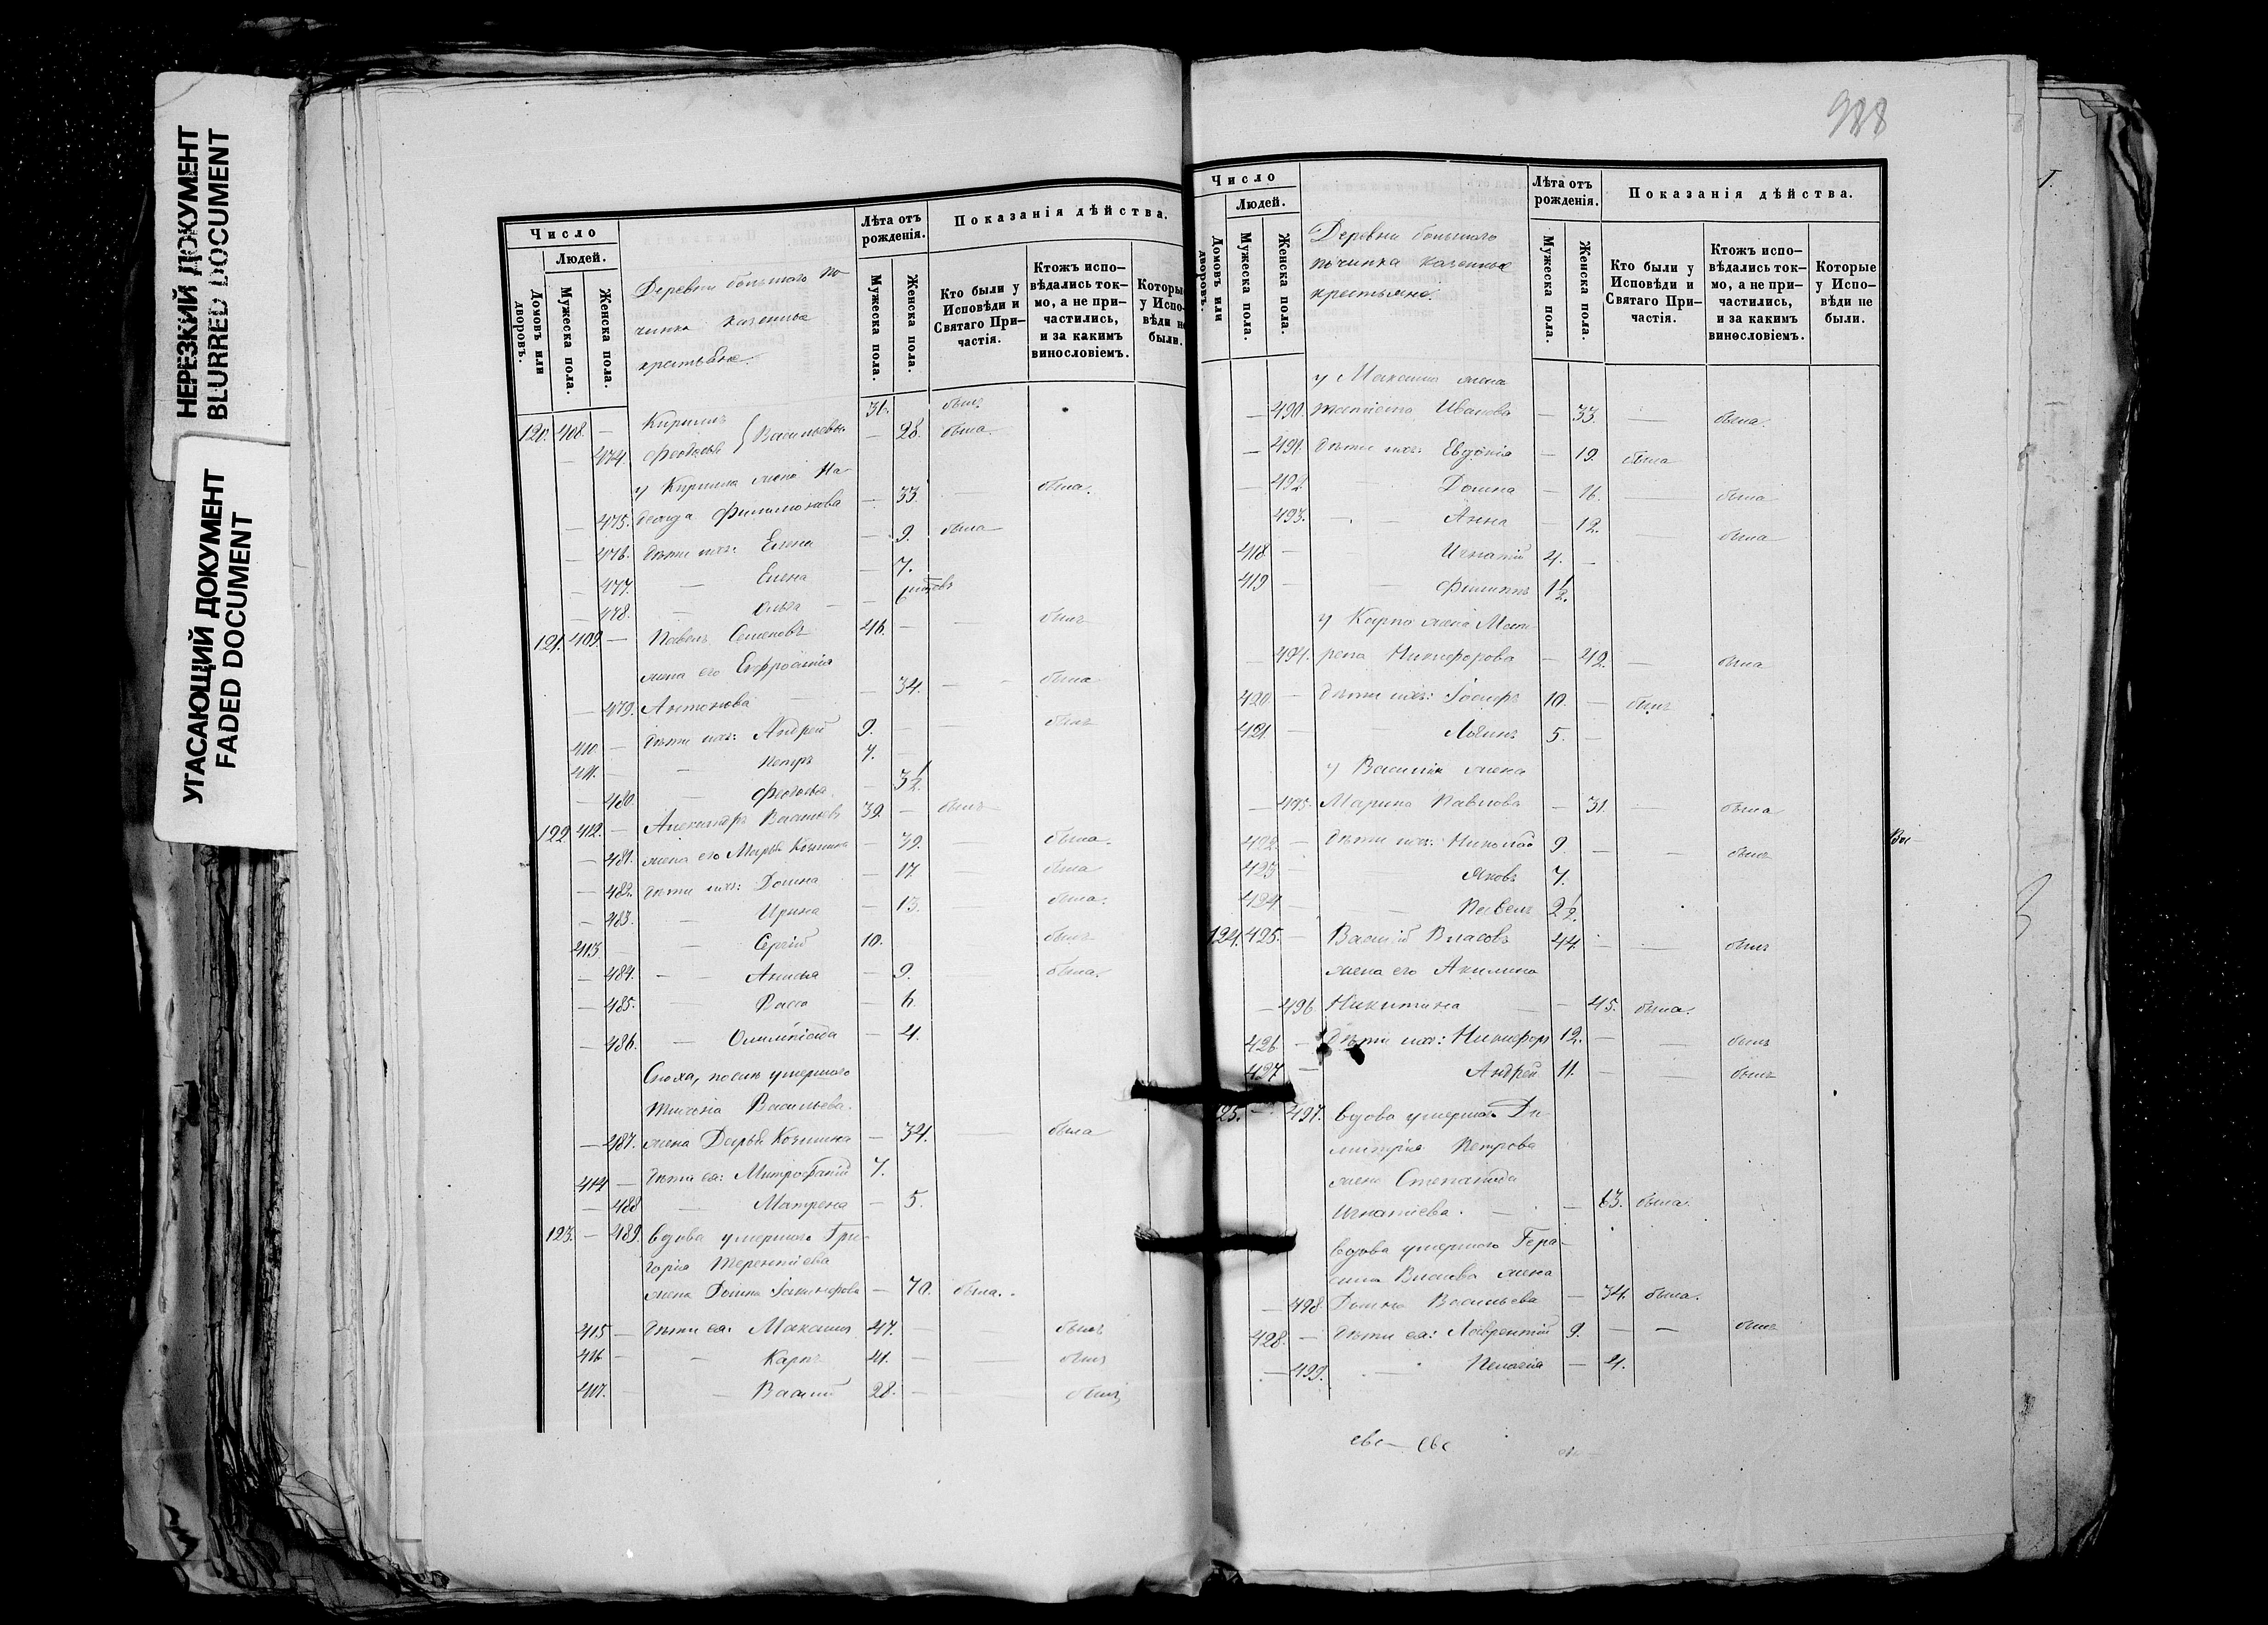 НЕРЕЗКИЙ ДОКУМЕНТ
BLURRED DOCUMENT
УГАСАЮЩИЙ ДОКУМЕНТ
FADED DOCUMENT
Число
Людей.
Домовъ или дворовъ.
Мужеска пола.
Женска пола.
Деревни большого по-
чинка казенные
крестьяне.
Лѣта отъ рожденія.
Мужеска пола.
Женска пола.
Показанія дѣйства.
Кто были у Исповѣди и Святаго При–частія.
Ктожъ испо–вѣдались ток–мо, а не при–частились, и за какимъ винословіемъ.
Которые у Испо–вѣди не были.
120. 408. — Кирилъ 31. былъ
— 474. Федосья } Васильевы — 28. была.
у Кирила жена На-
— 475. Филимонова — 33. — была.
— 476. дѣти ихъ: Елена — 9. была
— 477. — Елена — 7.
— 478. — Ольга —
121. 409. — Павелъ Семеновъ 46. — — былъ
жена его Евфросинія
— 479. Антонова — 34. — была
410 — дѣти ихъ: Андрей 9. — былъ
411. — — Петръ 7.
— 480. — Федосья. — 3½
122. 412. — Александръ Васильевъ 39. — былъ
— 481. жена его Марья Козмина — 39. — была.
— 482. дѣти ихъ: Домна — 17 — была
— 483. — Ирина — 13. — была.
413 — Сергій 10. былъ
— 484. — — Анисья — 9. — была.
— 485. — Васса — 6
— 486. — Олимпіада — 4.
Сноха, послѣ умершаго
Васильева
— 487. жена Дарья Козмина — 34. — была
414 — дѣти ея: Митрофаній 7.
— 488 — Матрена — 5.
123. — 489. вдова умершаго Гри-
горія Терентіева
жена Домна Никифорова — 70. была.
415 — дѣти ея: Максимъ 47. — — былъ
416 — — Карпъ 41. — — былъ
417. — Василій 28. — былъ
988
Число
Людей.
Домовъ или дворовъ.
Мужеска пола.
Женска пола.
Деревни большого
починка казенные
крестьяне.
Лѣта отъ рожденія.
Мужеска пола.
Женска пола.
Показанія дѣйства.
Кто были у Исповѣди и Святаго При–частія.
Ктожъ испо–вѣдались ток–мо, а не при–частились, и за какимъ винословіемъ.
Которые у Испо–вѣди не были.
у Максима жена
— 490. Иванова — 33. — была.
— 491. дѣти ихъ: Евдокія — 19. была
— 492. Домна — 16. — была
493. — — Анна — 12. — была
418 — Игнатій 4. —
419 — — Филиппъ 1½.
у Карпа жена Мат-
— 494. рена Никифорова — 42. — была
420 — дѣти ихъ: Іосифъ 10. — былъ
421. — Логинъ 5. —
у Василія жена
— 495. Марина Павлова — 31. — была
422 — дѣти ихъ: Николай 9. — — былъ
423 — Яковъ 7.
424 — — Павелъ 2½.
124. 425. — Василій Власовъ 44. — — былъ
жена его Акилина
— 496. Никитина — — 45. была.
426 — дѣти ихъ: Никифоръ 12. — — былъ
427 — Андрей 11. — — былъ
125. — 497. вдова умершаго Ди-
митрія Петрова
жена Степанида
Игнатіева. — — 63. была.
вдова умершаго Гера-
сима Власова жена
— 498. Домна Васильева — 34. была.
428. — дѣти ея: Лаврентій 9. — — былъ
— 499. — Пелагія — 4.